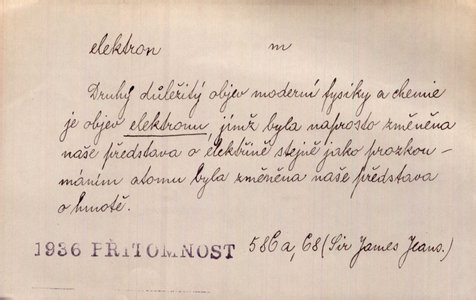 elektron m
Druhý důležitý objev moderní fysiky a chemie
je objev elektronu, jímž byla naprosto změněna
naše představa o elektřině stejně jako prozkou-
máním atomu byla změněna naše představa
o hmotě.
1936 PŘÍTOMNOST 586a, 68 (Sir James Jeans.)